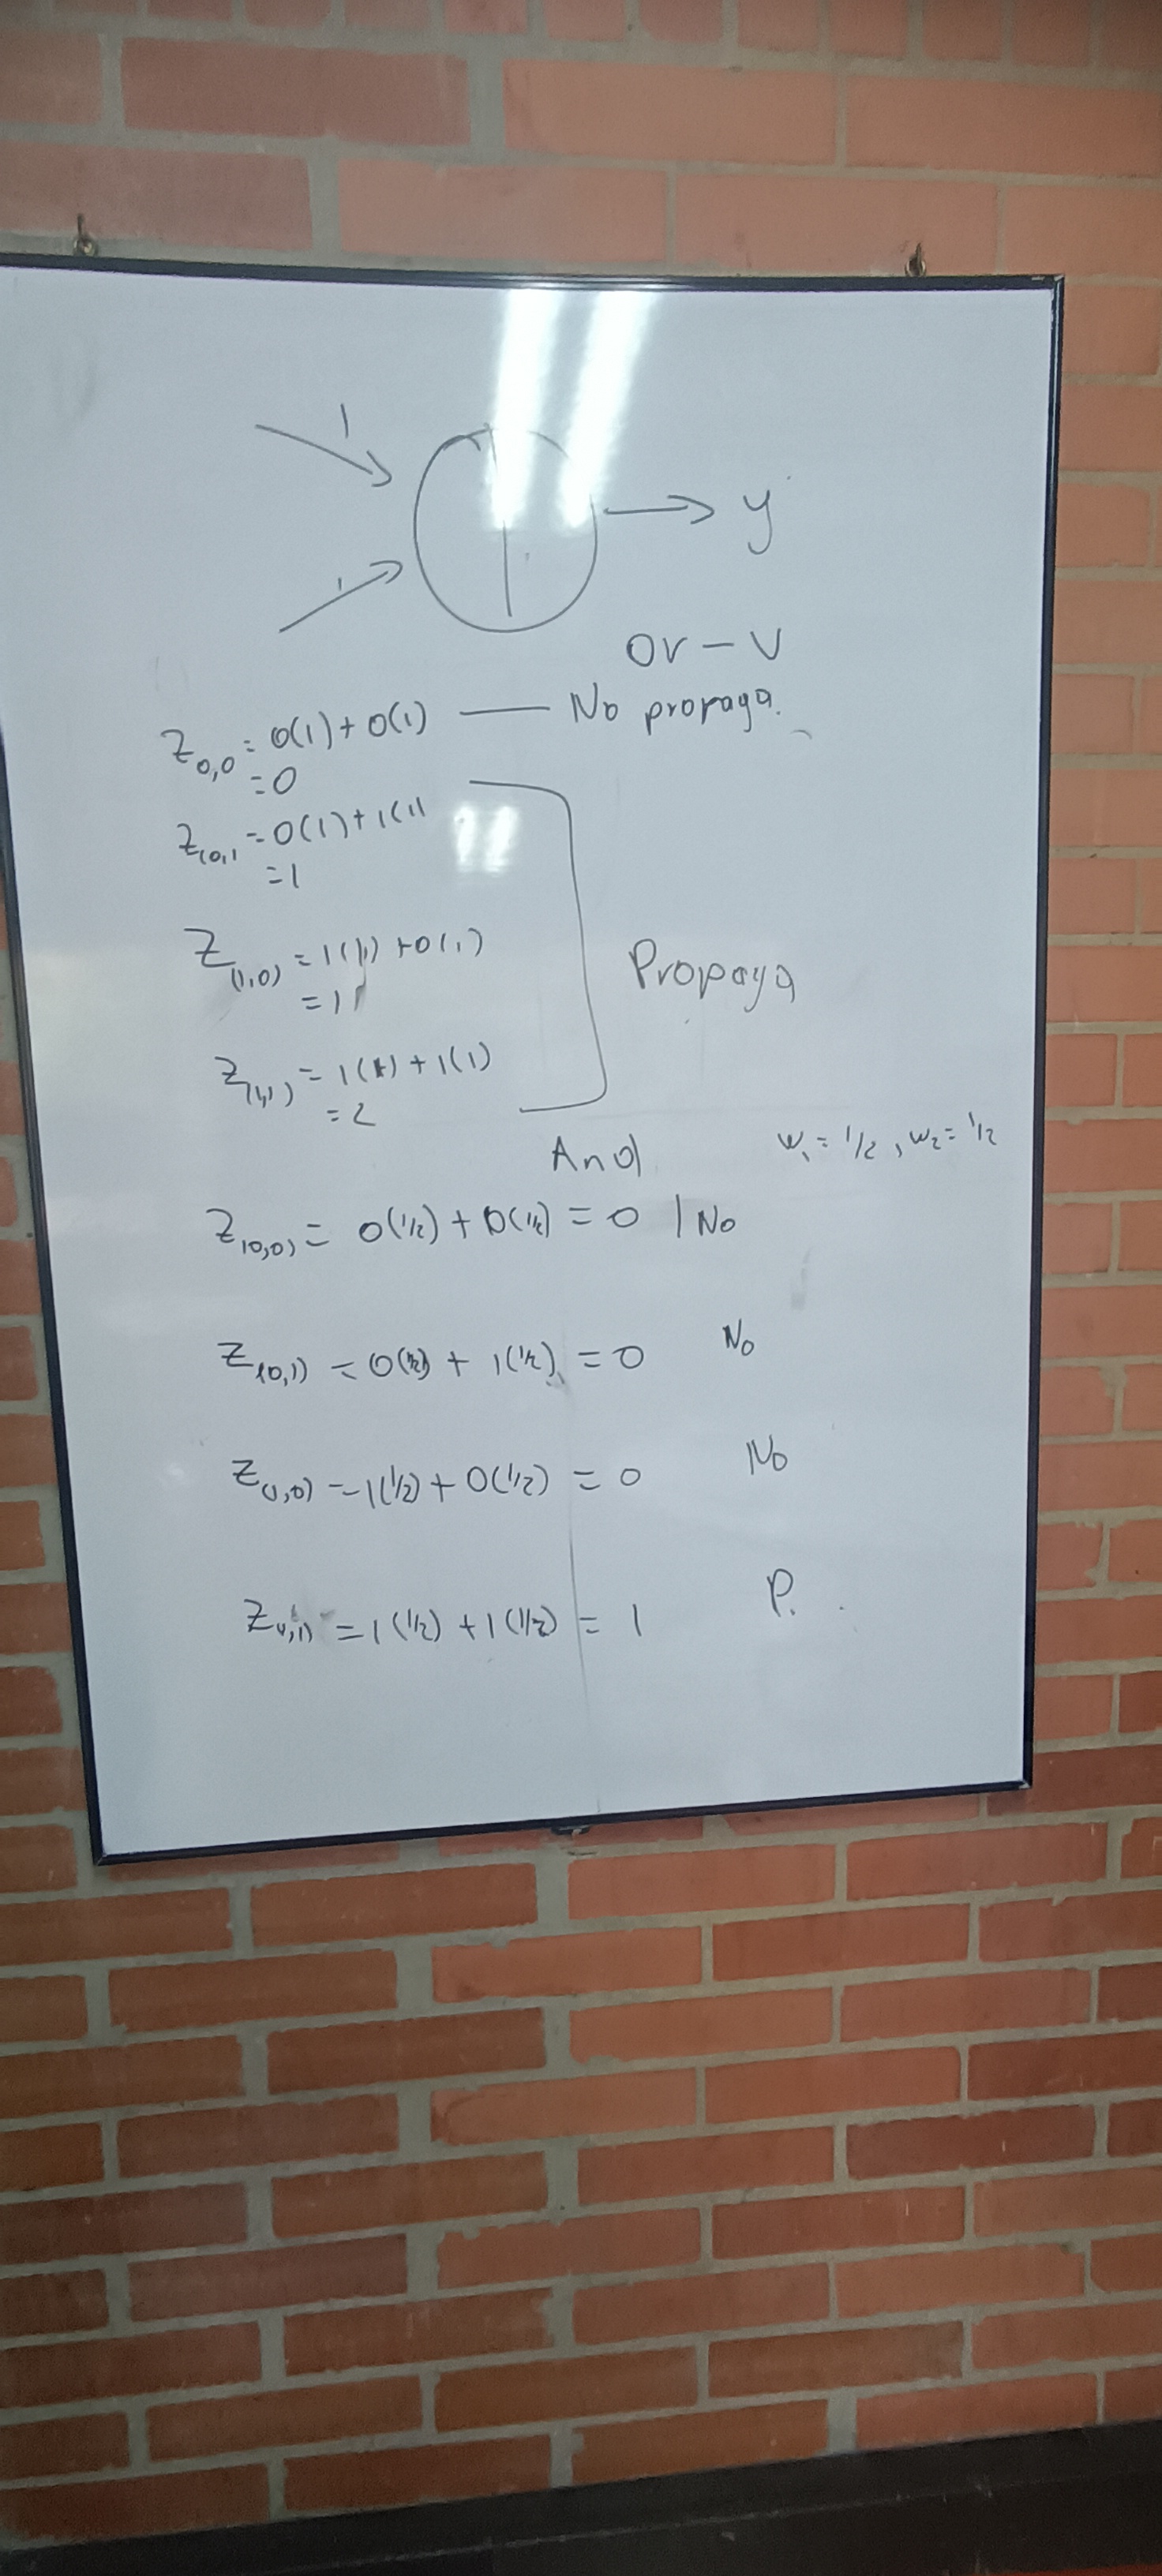 1
1
y
Or – V
Z0,0 = 0(1) + 0(1) — No propaga.
= 0
Z(0,1 = 0(1) + 1(1)
= 1
Z(1,0) = 1(1) + 0(1)
= 1
Propaga
Z(1,1) = 1(1) + 1(1)
= 2
And
w1 = 1/2 , w2 = 1/2
Z(0,0) = 0(1/2) + 0(1/2) = 0 | No
Z(0,1) = 0(1/2) + 1(1/2) = 0 No
Z(1,0) = 1(1/2) + 0(1/2) = 0 No
Z(1,1) = 1(1/2) + 1(1/2) = 1 P.